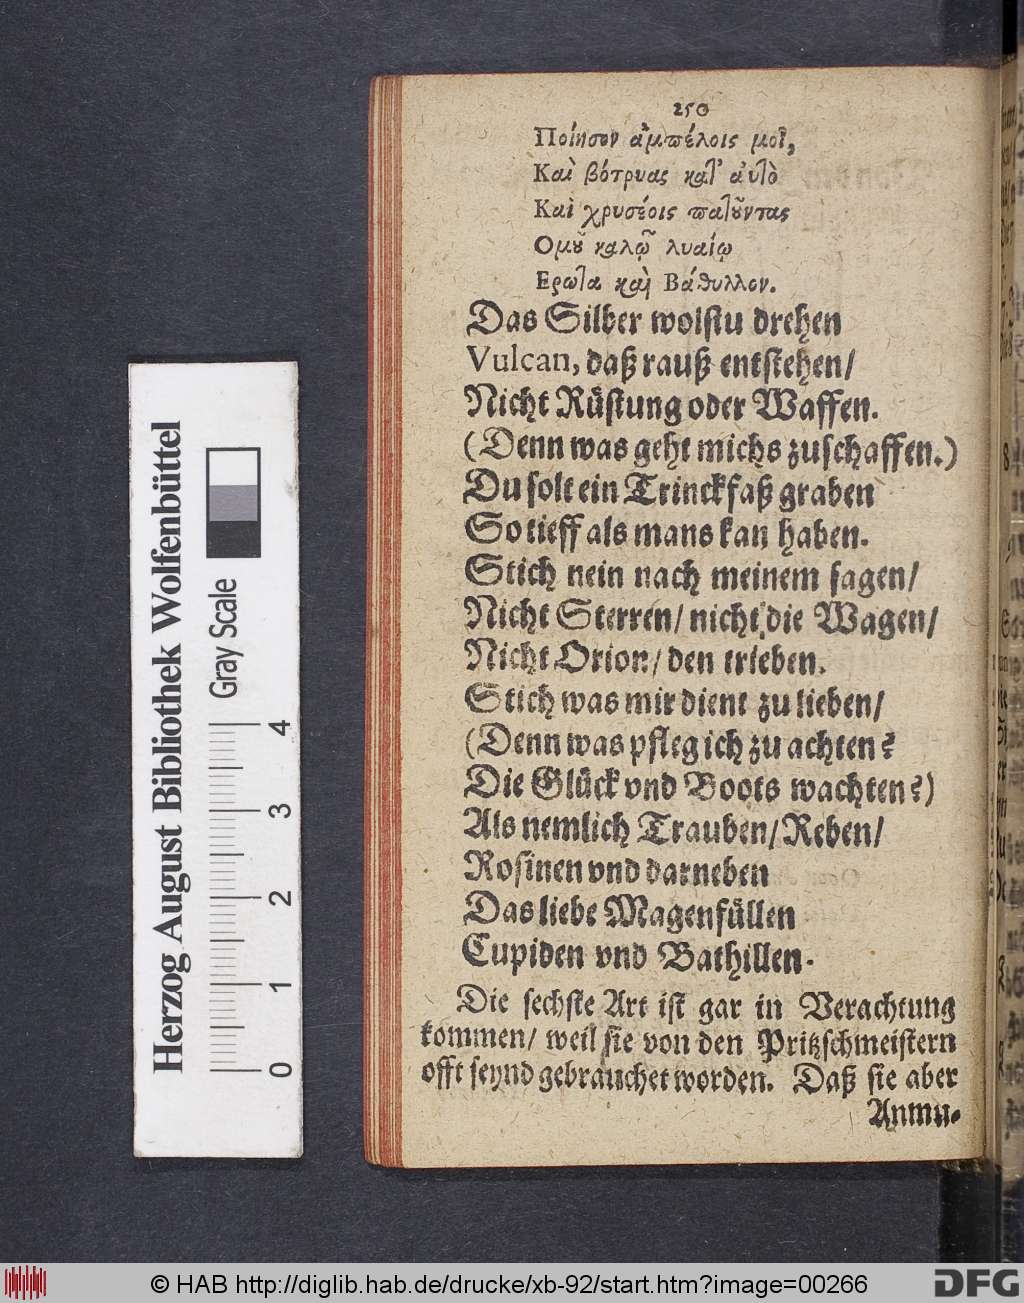 250
Ποίησον ἀμπέλοις μοὶ,
Καὶ βότρυας κατ' ἀυτὸ
Καὶ χρυσέοις πατοῦντας
Ομοῦ καλῷ λυαίῳ
Ερωτα καὶ Βάθυλλον.
Das Silber wolstu drehen
Vulcan, daß rauß entstehen/
Nicht Rüstung oder Waffen.
(Denn was geht michs zuschaffen.)
Du solt ein Trinckfaß graben
So tieff als mans kan haben.
Stich nein nach meinem sagen/
Nicht Sterren/ nicht die Wagen/
Nicht Orion/ den trieben.
Stich was mir dient zu lieben/
(Denn was pfleg ich zu achten?
Die Glück vnd Boots wachten?)
Als nemlich Trauben/ Reben/
Rosinen vnd darneben
Das liebe Magenfüllen
Cupiden vnd Bathillen.
Die sechste Art ist gar in Verachtung
kommen/ weil sie von den Pritzschmeistern
offt seynd gebrauchet worden. Daß sie aber
Anmu-
Herzog August Bibliothek Wolfenbüttel
Gray Scale
0 1 2 3 4
© HAB http://diglib.hab.de/drucke/xb-92/start.htm?image=00266
DFG